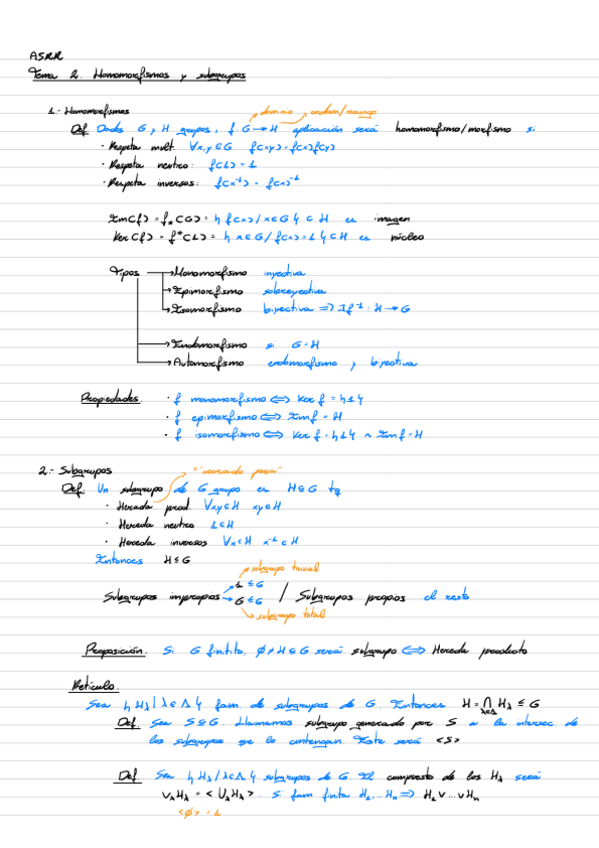 ASRR
Tema 2. Homomorfismos y subgrupos
1.- Homomorfismos
dominio codom/rango
Def Dados G y H grupos, f: G → H aplicación será homomorfismo/morfismo si
· Respeta mult. ∀x,y∈G f(xy) = f(x)f(y)
· Respeta neutro: f(1) = 1
· Respeta inversos: f(x⁻¹) = f(x)⁻¹
Im(f) = f*(G) = {f(x)/x∈G} ⊂ H es imagen
Ker(f) = f*(1) = {x∈G/f(x)=1} ⊂ H es núcleo
Tipos → Monomorfismo inyectiva
→ Epimorfismo sobreyectiva
→ Isomorfismo biyectiva ⇒ ∃f⁻¹: H → G
→ Endomorfismo si G = H
→ Automorfismo endomorfismo y biyectiva
Propiedades. · f monomorfismo ⇔ Ker f = {1}
· f epimorfismo ⇔ Im f = H
· f isomorfismo ⇔ Ker f = {1} ∧ Im f = H
2.- Subgrupos
"cerrado para"
Def. Un subgrupo de G grupo es H⊆G tq
· Hereda prod. ∀x,y∈H xy∈H
· Hereda neutro 1∈H
· Hereda inversos ∀x∈H x⁻¹∈H
Entonces H ≤ G
subgrupo trivial
1 ≤ G
Subgrupos impropios / Subgrupos propios el resto
G ≤ G
subgrupo total
Proposición. Si G finito, ∅≠H⊆G será subgrupo ⇔ Hereda producto
Retículo.
Sea {Hλ/λ∈Λ} fam. de subgrupos de G. Entonces H = ⋂λ∈Λ Hλ ≤ G
Def. Sea S⊆G. Llamamos subgrupo generado por S a la intersec. de
los subgrupos que lo contengan. Este será <S>
Def Sea {Hλ/λ∈Λ} subgrupos de G. El compuesto de los Hλ será
∨λHλ = <⋃λHλ>. Si fam finita H₁...Hₙ ⇒ H₁∨...∨Hₙ
<∅> = 1